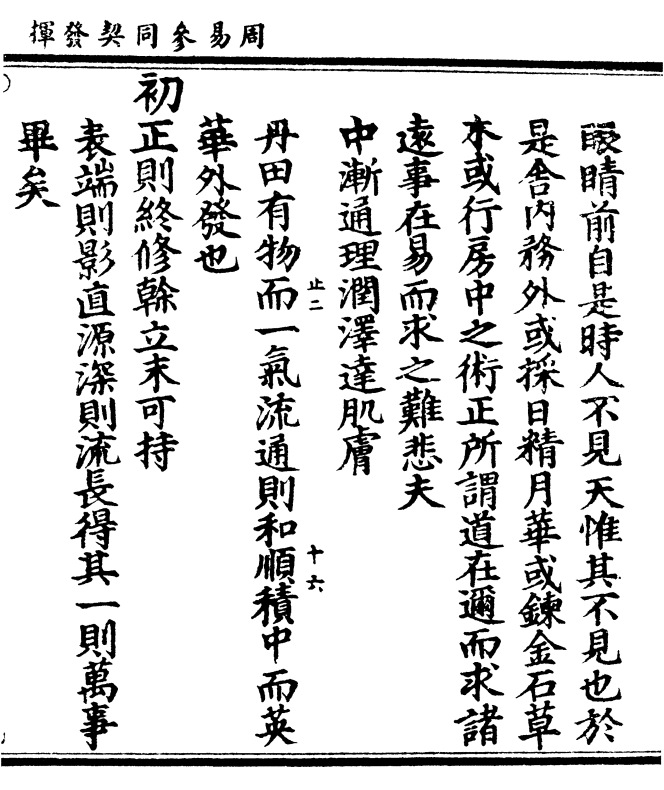 周易參同契發揮
眼睛前自是時人不見天惟其不見也於
是舍內務外或採日精月華或鍊金石草
木或行房中之術正所謂道在邇而求諸
遠事在易而求之難悲夫
中漸通理潤澤達肌膚
止二
十六
丹田有物而一氣流通則和順積中而英
華外發也
初正則終修榦立末可持
表端則影直源深則流長得其一則萬事
畢矣